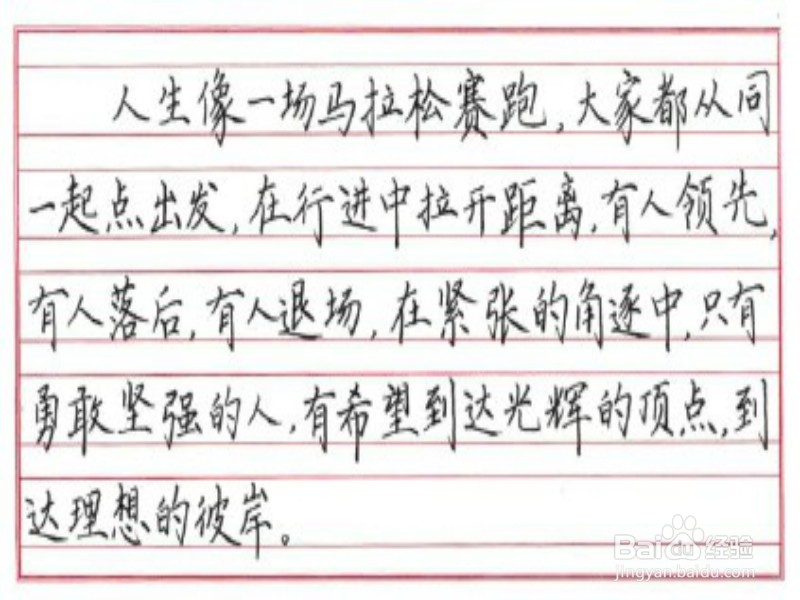 人生像一场马拉松赛跑，大家都从同
一起点出发，在行进中拉开距离，有人领先，
有人落后，有人退场，在紧张的角逐中，只有
勇敢坚强的人，有希望到达光辉的顶点，到
达理想的彼岸。
Baidu经验
jingyan.baidu.com